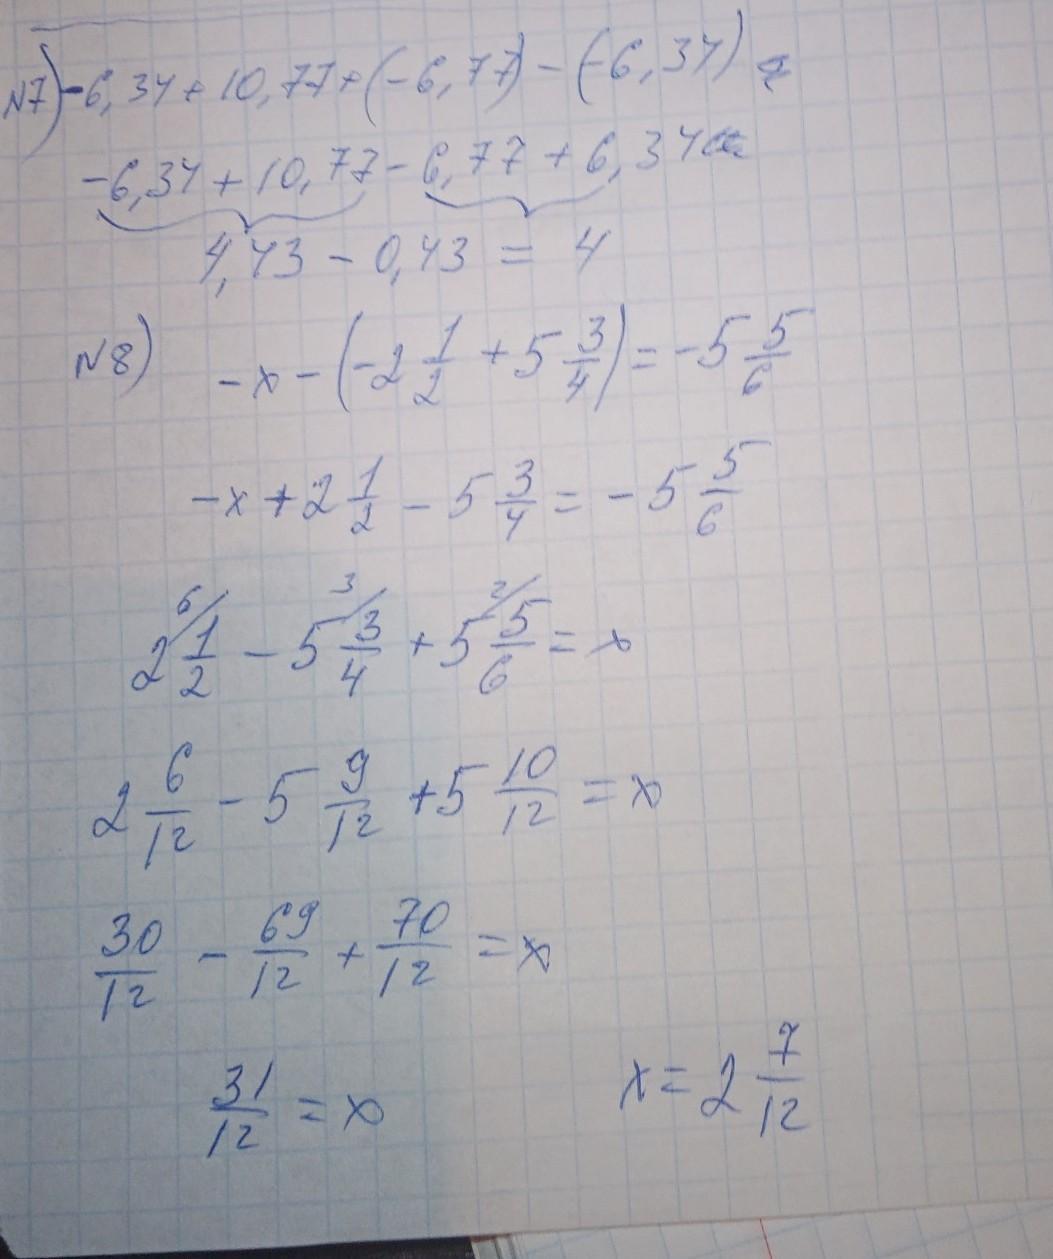 №7) -6,34 + 10,77 + (-6,77) - (-6,34) =
-6,34 + 10,77 - 6,77 + 6,34 =
4,43 - 0,43 = 4
№8) -x - (-2 1/2 + 5 3/4) = -5 5/6
-x + 2 1/2 - 5 3/4 = -5 5/6
6/ 3/ 2/
2 1/2 - 5 3/4 + 5 5/6 = x
2 6/12 - 5 9/12 + 5 10/12 = x
30/12 - 69/12 + 70/12 = x
31/12 = x x = 2 7/12